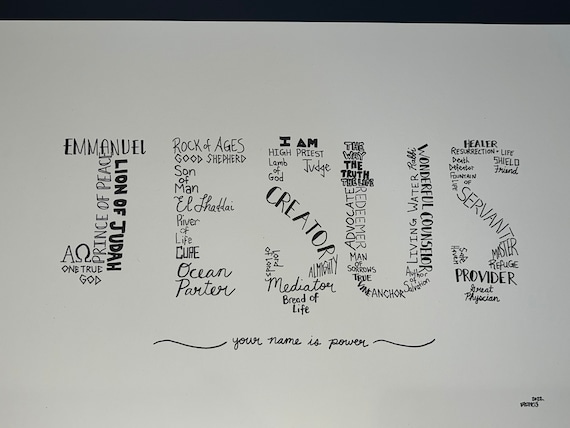 EMMANUEL
PRINCE OF PEACE
LION OF JUDAH
ΑΩ
ONE TRUE
GOD
ROCK OF AGES
GOOD SHEPHERD
Son
of
Man
El Shaddai
River
of
Life
CURE
Ocean
Parter
I AM
HIGH PRIEST
Lamb
of
God
Judge
CREATOR
ALMIGHTY
Mediator
Bread of
Life
THE
WAY
THE
TRUTH
THE LIFE
ADVOCATE
REDEEMER
MAN
OF
SORROWS
TRUE
VINE
ANCHOR
Author
of
Salvation
LIVING WATER
Rabbi
WONDERFUL COUNSELOR
HEALER
RESURRECTION + LIFE
Death
Defeator
SHIELD
Friend
FOUNTAIN
OF
LIFE
SERVANT
MASTER
Safe
Haven
REFUGE
PROVIDER
Great
Physcian
your name is power
2022